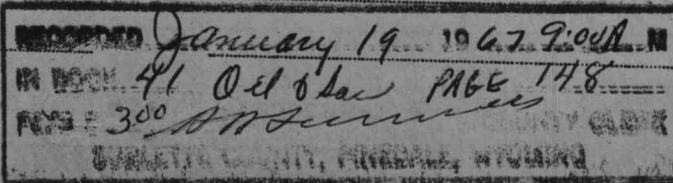 RECORDED January 19 1967 9:00A M
IN BOOK 41 Oil & Gas PAGE 148
FEES $ 3.00 COUNTY CLERK
SUBLETTE COUNTY, PINEDALE, WYOMING